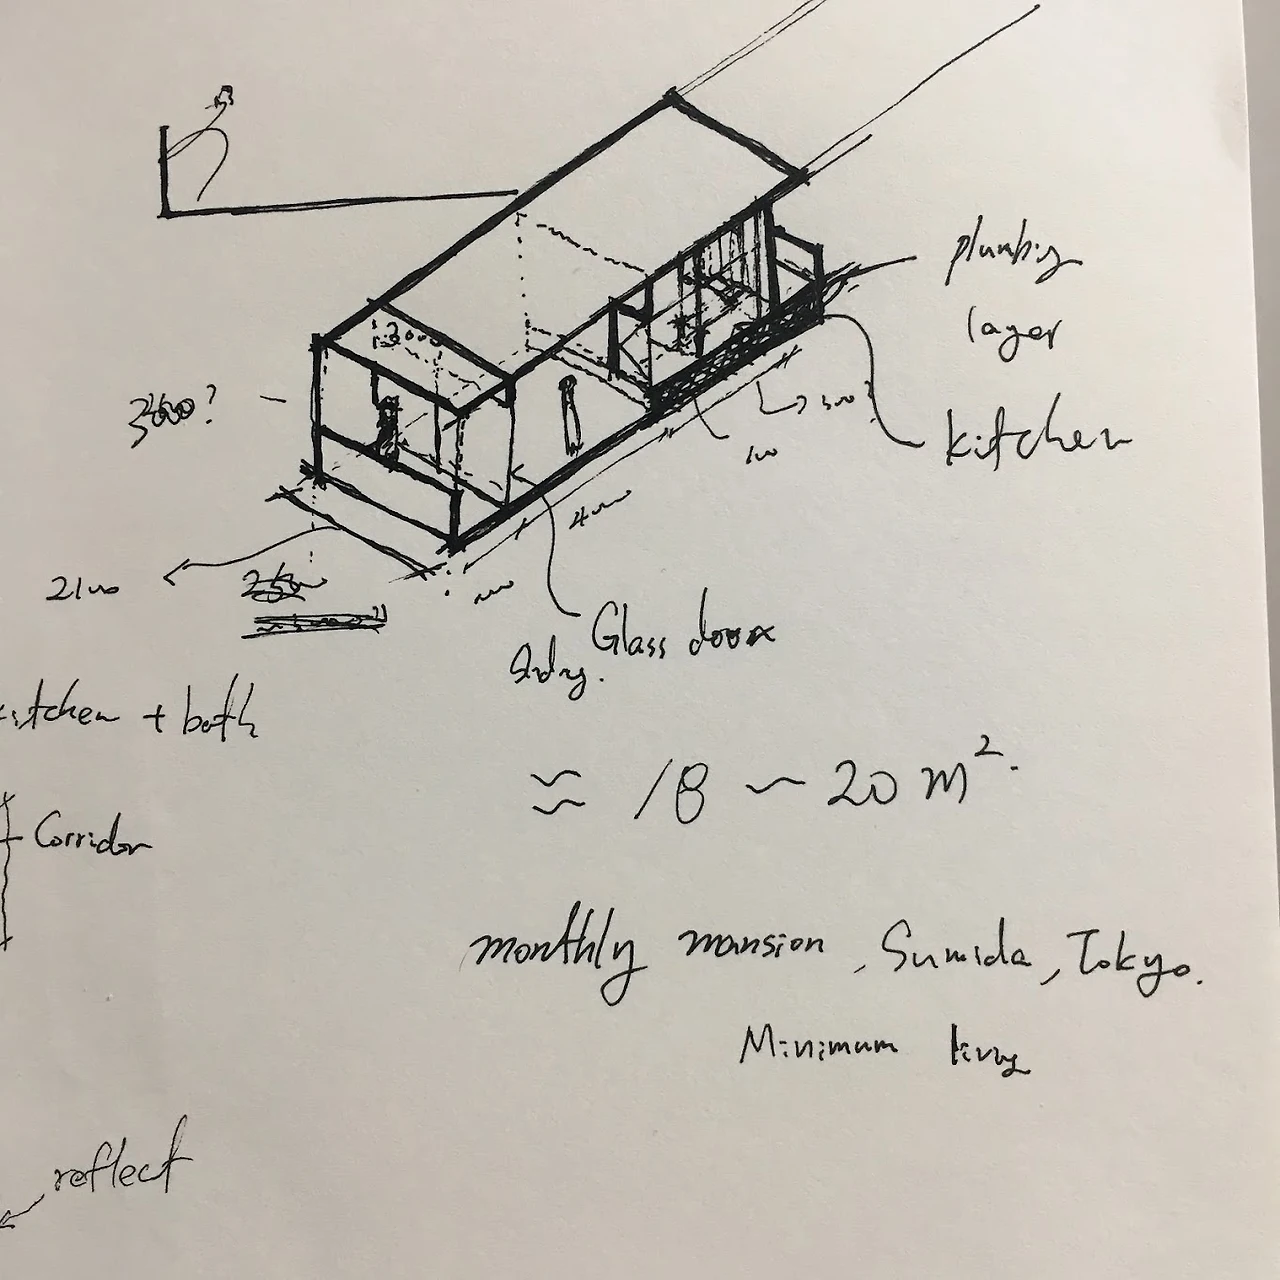 plumbing
layer
kitchen
4000
2100
Glass door
kitchen + bath
≈ 18 ~ 20 m².
Corridor
monthly mansion, Sumida, Tokyo.
Minimum living
reflect